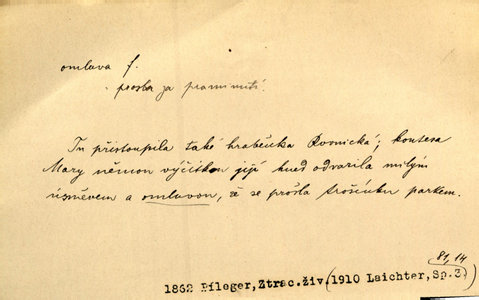 omluva f.
prosba za prominutí.
Tu přistoupila také hraběnka Rvonická; kontesa
Mary němou výčitku její hned odvarila milým
úsměvem a omluvou, že se prošla trošinku parkem.
81, 14
1862 Pfleger, Ztrac.živ. (1910 Laichter, Sp.3)